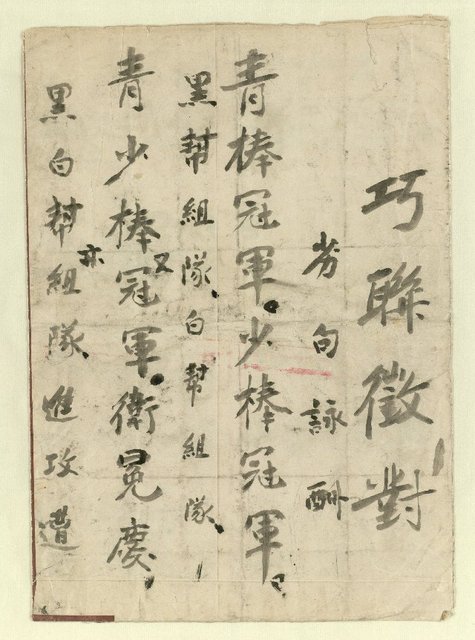 巧聯徵對
劣句詠酬
青棒冠軍。少棒冠軍,
黑幫組隊、白幫組隊、
青少棒又冠軍。衛冕慶,
黑白幫亦組隊、進攻遭